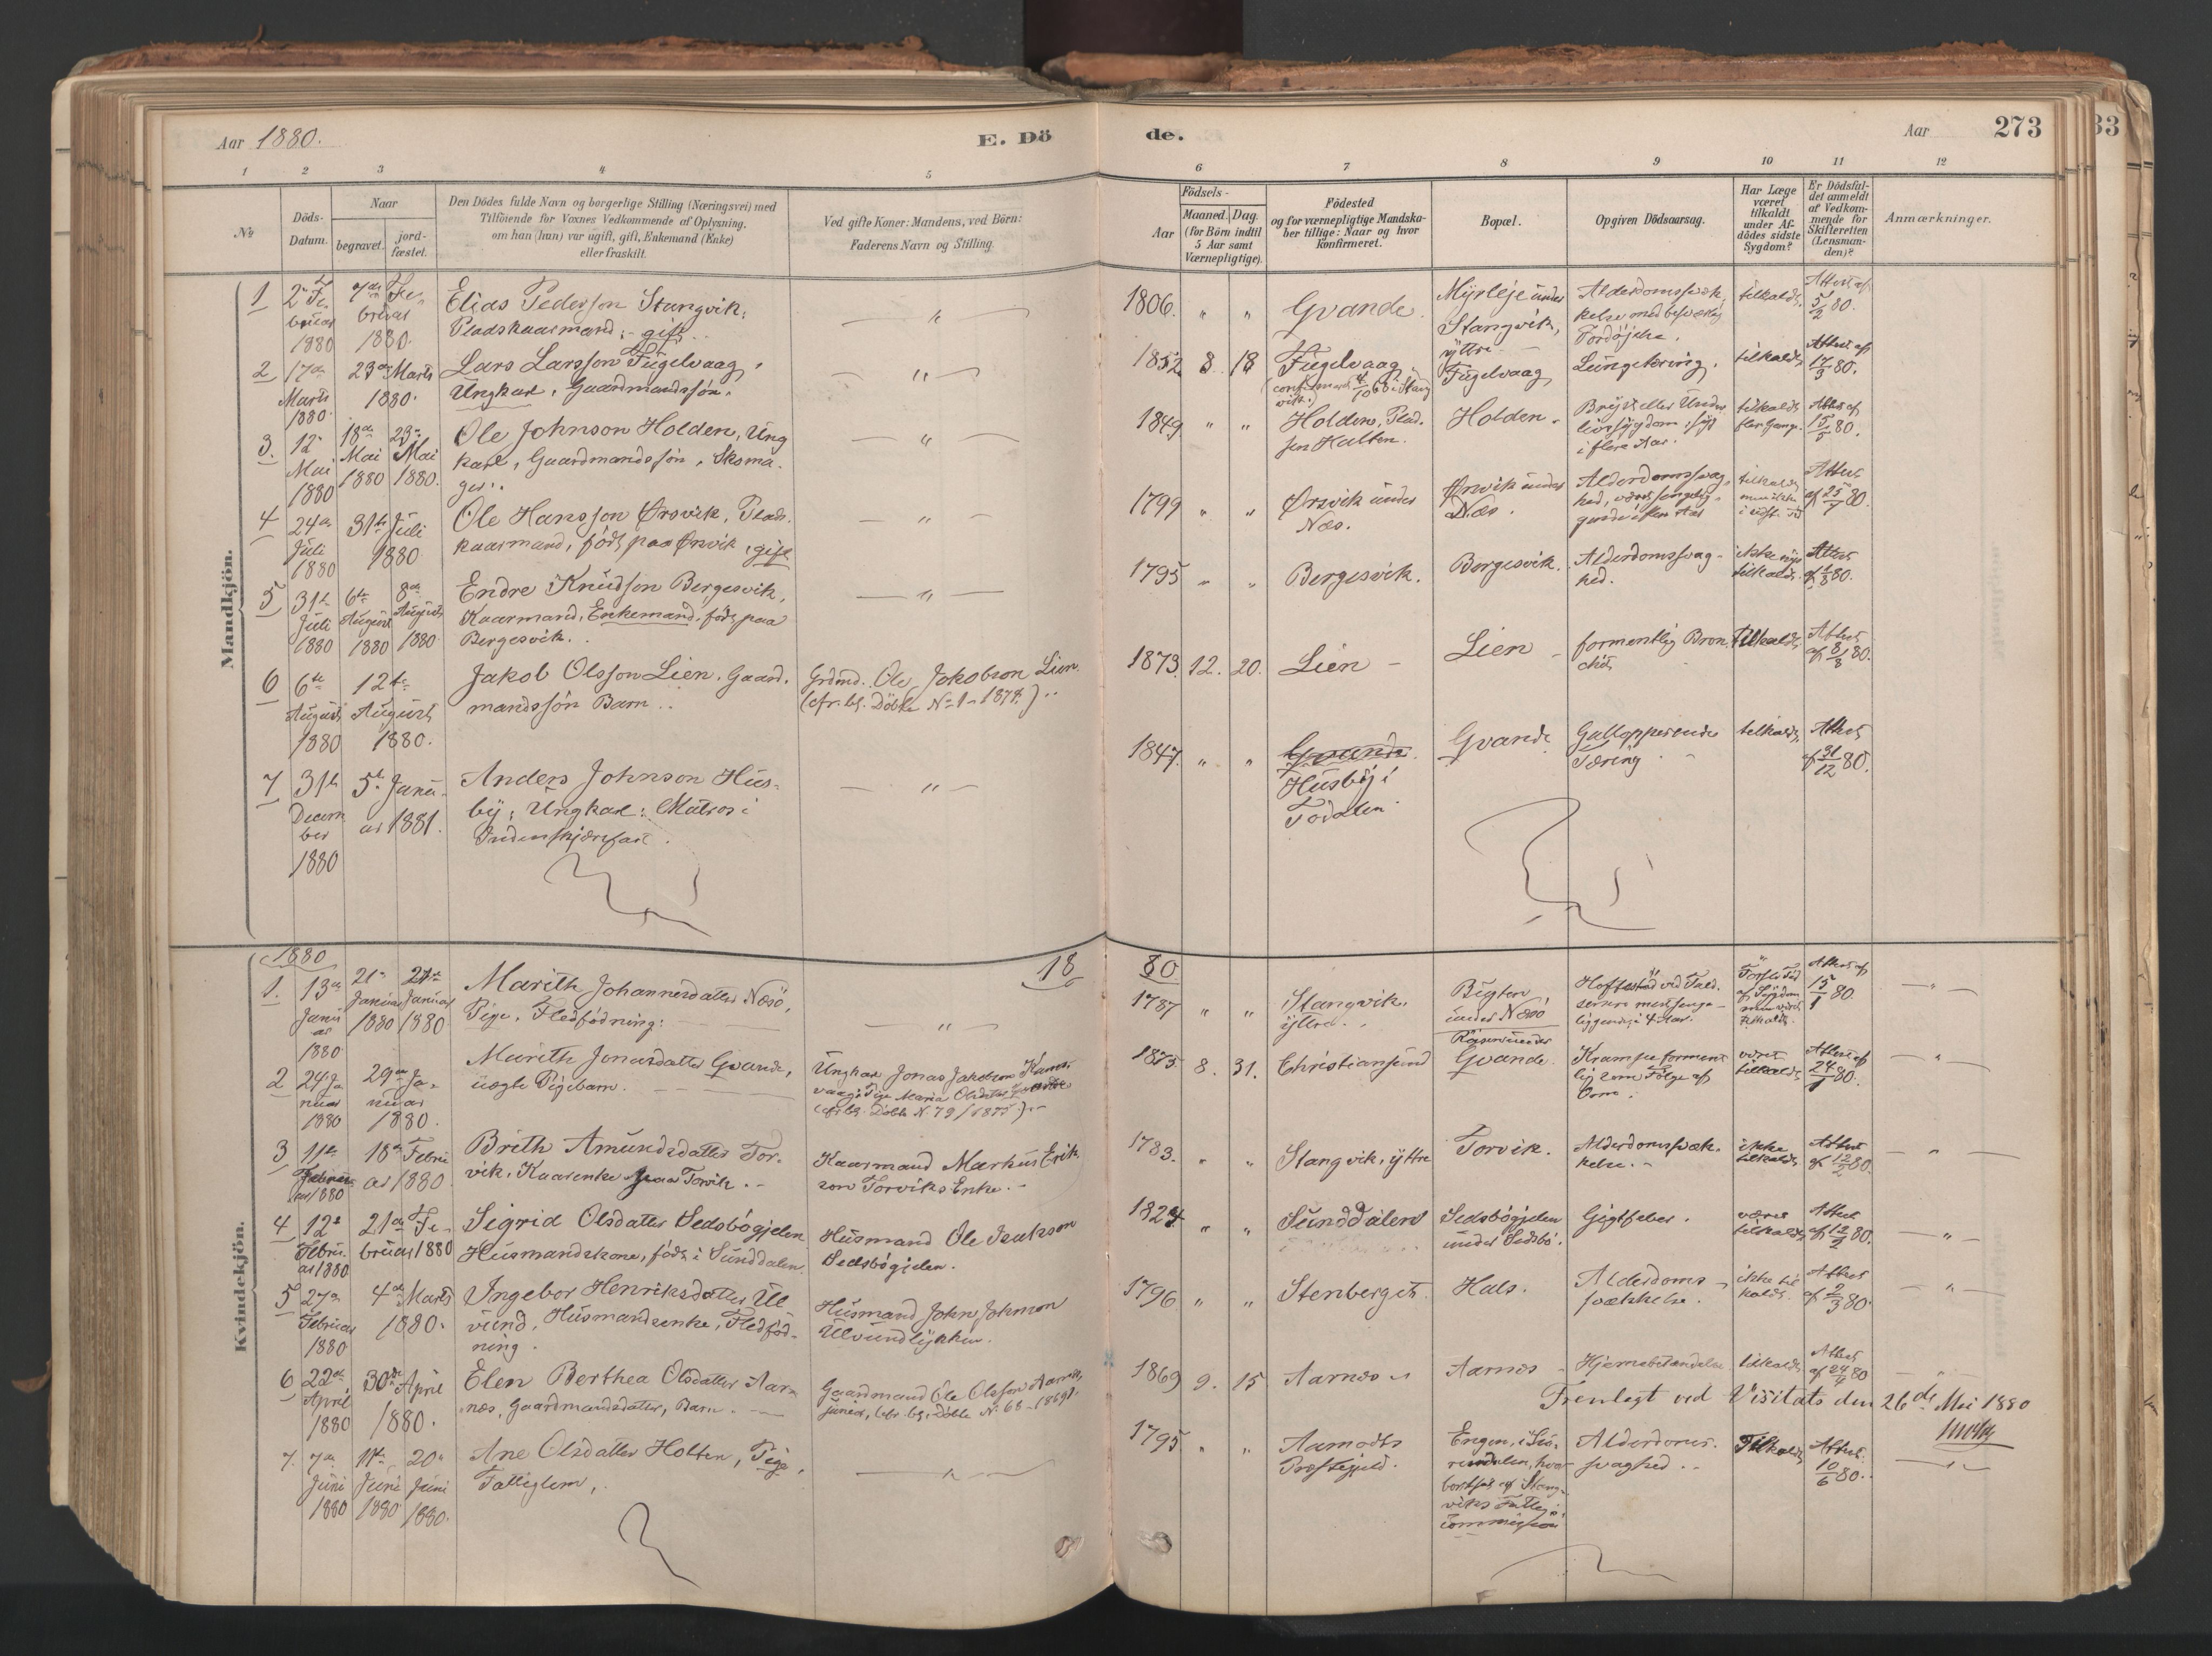 Aar 1880.
E. Dö
de.
Aar
273
33
1
2
3
4
5
6
7
8
9
10
11
12
№
Döds-
Datum.
Naar
begravet.
jord-
fæstet.
Den Dödes fulde Navn og borgerlige Stilling (Næringsvei) med
Tilföiende for Voxnes Vedkommende af Oplysning,
om han (hun) var ugift, gift, Enkemand (Enke)
eller fraskilt.
Ved gifte Koner: Mandens, ved Börn:
Faderens Navn og Stilling.
Födsels-
Aar
Maaned.
Dag.
(for Börn indtil
5 Aar samt
Værnepligtige).
Födested
og for værnepligtige Mandska-
ber tillige: Naar og hvor
konfirmeret.
Bopæl.
Opgiven Dödsaarsag.
Har Læge
været
tilkaldt
under Af-
dödes sidste
Sygdom?
Er Dödsfal-
det anmeldt
af Vedkom-
mende for
Skifteretten
(Lensman-
den)?
Anmærkninger.
Mandkjön.
1
2 Fe-
bruar
1880
7de Fe-
bruar
1880.
Elias Pedersson Stangvik,
Pladskaarmand; - gift
"
1806.
"
"
Gvande
Myrleje under
Stangvik,
yttre
Alderdomssvæk-
kelse med besværlig
Fordøjelse.
tilkaldt.
Attest af
5/2 80.
2
17de
Marts
1880
23de Marts
1880.
Lars Larsson Fugelvaag,
Ungkar, Gaardmandssøn.
"
1852
8
18
Fugelvaag
Fugelvaag
Lungetæring.
tilkaldt
Attest af
17/3 80.
3.
12
Mai
1880
18de
Mai
1880
23de
Mai
1880.
Ole Johnson Holden, Ung
karl, Gaardmandssøn, Skoma-
ger.
"
1849
"
"
Holden, Plad-
sen Halten.
Holden.
Bryst eller Under
livssygdom, syg
i flere Aar.
tilkaldt
flere Gange.
Attest af
15/5 80.
4
24de
Juli
1880
31te Juli
1880
Ole Hansson Ørsvik, Plads-
kaarmand, født paa Ørsvik, gift
"
1799
"
"
Ørsvik under
Næs.
Ørsvik under
Næs.
Alderdomssvag-
hed, været sengelig-
gende i flere Aar
tilkaldt
Attest
af 25/7 80.
5
31te
Juli
1880
6te
August
1880
8de
August
1880
Endre Knudson Bergesvik,
Kaarmand, Enkemand, født paa
Bergesvik.
"
1795
"
"
Bergesvik.
Bergesvik.
Alderdomssvag-
hed.
ikke
tilkaldt.
Attest
af 1/8 80.
6
6te
August
1880
12te
August
1880.
Jakob Olsson Lien, Gaard-
mandssøn Barn ..
Grdmd. Ole Jakobson Lien
(cfr. bg. Döbte № 1 - 1874.)
1873
12.
20.
Lien -
Lien
formentlig Bron-
chit
tilkaldt
Attest
af 8/8 80.
7
31te
Decem
ber
1880
5te Janu-
ar 1881.
Anders Johnson Hus-
by; Ungkarl: Matros i
Indenskjærsfart.
"
1847.
"
"
Gvande
Husby i
Todalen
Gvande
Gallopperende
Tæring
tilkaldt
Attest
af 31/12 80.
Kvindekjön.
1880
18
80
1.
13de
Janu
ar
1880
21
Januar
1880
24de
Januar
1880
Marith Johannesdatter Næsö,
Pige, Fledfødning:
"
1787
"
"
Stangvik,
yttre..
Bugten
under Næsö
Hoftestød ved Fald,
senere mest senge-
liggende i 4 Aar.
Attest af
15/1 80.
"
2
24 Ja
nuar
1880
29de Ja-
nuar
1880.
Marith Jonasdatter Gvande,
uægte Pigebarn.
Ungkar Jonas Jakobson
Pige Maria Olsdatter
(cfr bg. Döbte № 79 / 1875)
1875
8.
31.
Christiansund
Röisen under
Gvande.
Krampe forment
lig som Følge af
Orm.
været
tilkaldt
Attest af
24/1 80.
"
3
11te
Februar
1880
18de Febru
ar 1880
Brith Amundsdatter Tor-
vik, Kaarenke paa Torvik.
Kaarmand Markus Erik
son Torviks Enke.
1783.
"
"
Stangvik, yttre
Torvik.
Alderdomssvæk-
kelse.
ikke
tilkaldt
Attest
af 12/2 80.
"
4
12te
Febru-
ar 1880
21de Fe-
bruar 1880
Sigrid Olsdatter Sedsbøgjelen
Husmandskone, født i Sunddalen.
Husmand Ole Isakson
Sedsbøgjelen.
1824
"
"
Sunddalen
Sedsbögjelen
under Sedsbö.
Gigtfeber.
været
tilkaldt
Attest
af 12/2 80.
"
5
27de
Februar
1880
4de Marts
1880.
Ingebor Henriksdatter Ul
vund, Husmandsenke, Fledfød-
ning.
Husmand John Johnson
Ulvundlykkin.
1796
"
"
Stenberget
Hals.
Alderdoms-
svækkelse.
ikke til
kaldt.
Attest
af 2/3 80.
"
6
22de
April
1880
30te April
1880.
Elen Berthea Olsdatter Aar-
nes, Gaardmandsdatter, Barn.
Gaardmand Ole Olsson Aarnes,
junior, (cfr. bg. Döbte № 68 - 1869)
1869
9.
15
Aarnes
Aarnes
Hjernebetændelse
tilkaldt
Attest
af 24/4 80
Fremlagt ved Visitats den 26de Mai 1880
7.
7de
Juni
1880
11te
Juni
1880
20de
Juni
1880.
Ane Olsdatter Holten, Pige,
Fattiglem,
"
1795
"
"
Aamodts
Præstegjeld.
Engen, i Su-
rendalen, hvor
bortsat af Stang-
viks Fattig-
commission
Alderdoms-
svaghed..
Tilkaldt
Attest
10/6 80.
"